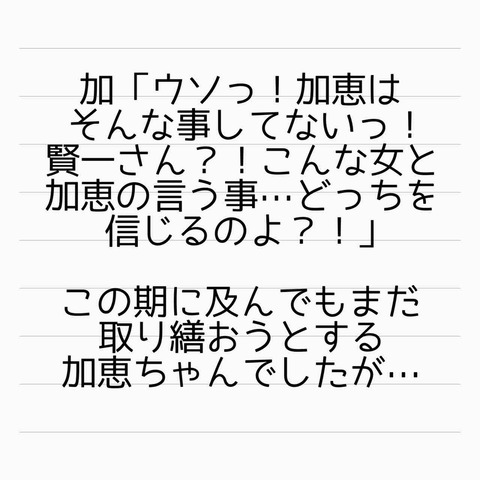 加「ウソっ！加恵は
そんな事してないっ！
賢一さん？！こんな女と
加恵の言う事…どっちを
信じるのよ？！」
この期に及んでもまだ
取り繕おうとする
加恵ちゃんでしたが…